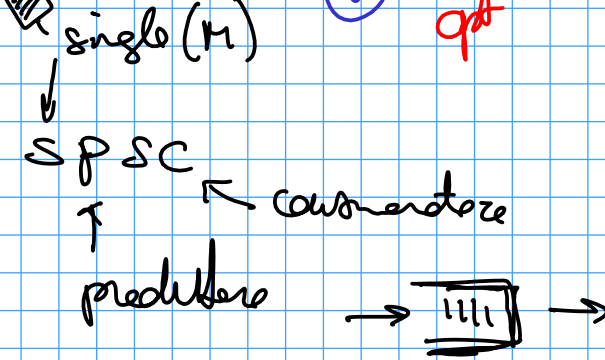 single (M)
opt
SPSC
consumatore
produttore